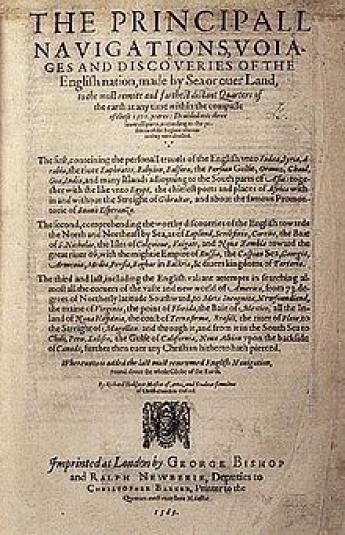 THE PRINCIPALL
NAVIGATIONS, VOIA-
GES AND DISCOVERIES OF THE
English nation, made by Sea or ouer Land,
to the most remote and farthest distant Quarters of
the earth at any time within the compasse
of these 1500. yeeres: Deuided into three
seuerall parts, according to the po-
sitions of the Regions whereun-
to they were directed.
The first, conteining the personall trauels of the English vnto Iudæa, Syria, A-
rabia, the riuer Euphrates, Babylon, Balsara, the Persian Gulfe, Ormuz, Chaul,
Goa, India, and many Islands adioyning to the South parts of Asia: toge-
ther with the like vnto Egypt, the chiefest ports and places of Africa with-
in and without the Streight of Gibraltar, and about the famous Promon-
torie of Buona Esperanza.
The second, comprehending the worthy discoueries of the English towards
the North and Northeast by Sea, as of Lapland, Scrikfinia, Corelia, the Baie
of S. Nicholas, the Isles of Colgoieue, Vaigats, and Noua Zembla toward the
great riuer Ob, with the mightie Empire of Russia, the Caspian Sea, Georgia,
Armenia, Media, Persia, Boghar in Bactria, & diuers kingdoms of Tartaria.
The third and last, including the English valiant attempts in searching al-
most all the corners of the vaste and new world of America, from 73. de-
grees of Northerly latitude Southward, to Meta Incognita, Newfoundland,
the maine of Virginia, the point of Florida, the Baie of Mexico, all the In-
land of Noua Hispania, the coast of Terra firma, Brasill, the riuer of Plate, to
the Streight of Magellan: and through it, and from it in the South Sea to
Chili, Peru, Xalisco, the Gulfe of California, Noua Albion vpon the backside
of Canada, further then euer any Christian hitherto hath pierced.
Whereunto is added the last most renowmed English Nauigation,
round about the whole Globe of the Earth.
By Richard Hakluyt Master of Artes, and Student sometime
of Christ-church in Oxford.
Imprinted at London by GEORGE BISHOP
and RALPH NEWBERIE, Deputies to
CHRISTOPHER BARKER, Printer to the
Queenes most excellent Maiestie.
1589.